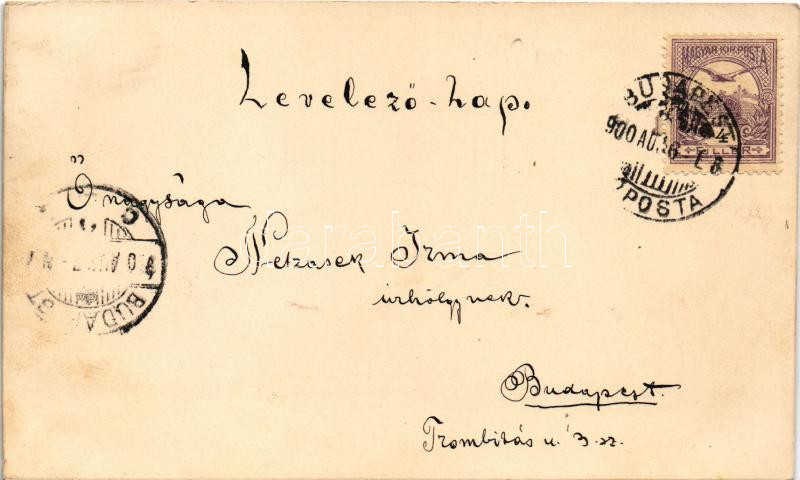 MAGYAR KIR. POSTA
FILLÉR
BUDAPEST 4
900 AUG
POSTA
Levelező-lap.
Ő nagysága
Netzasek Irma
úrhölgynek.
Budapest.
Trombitás u. 3. sz.
BUDAPEST
Darabanth